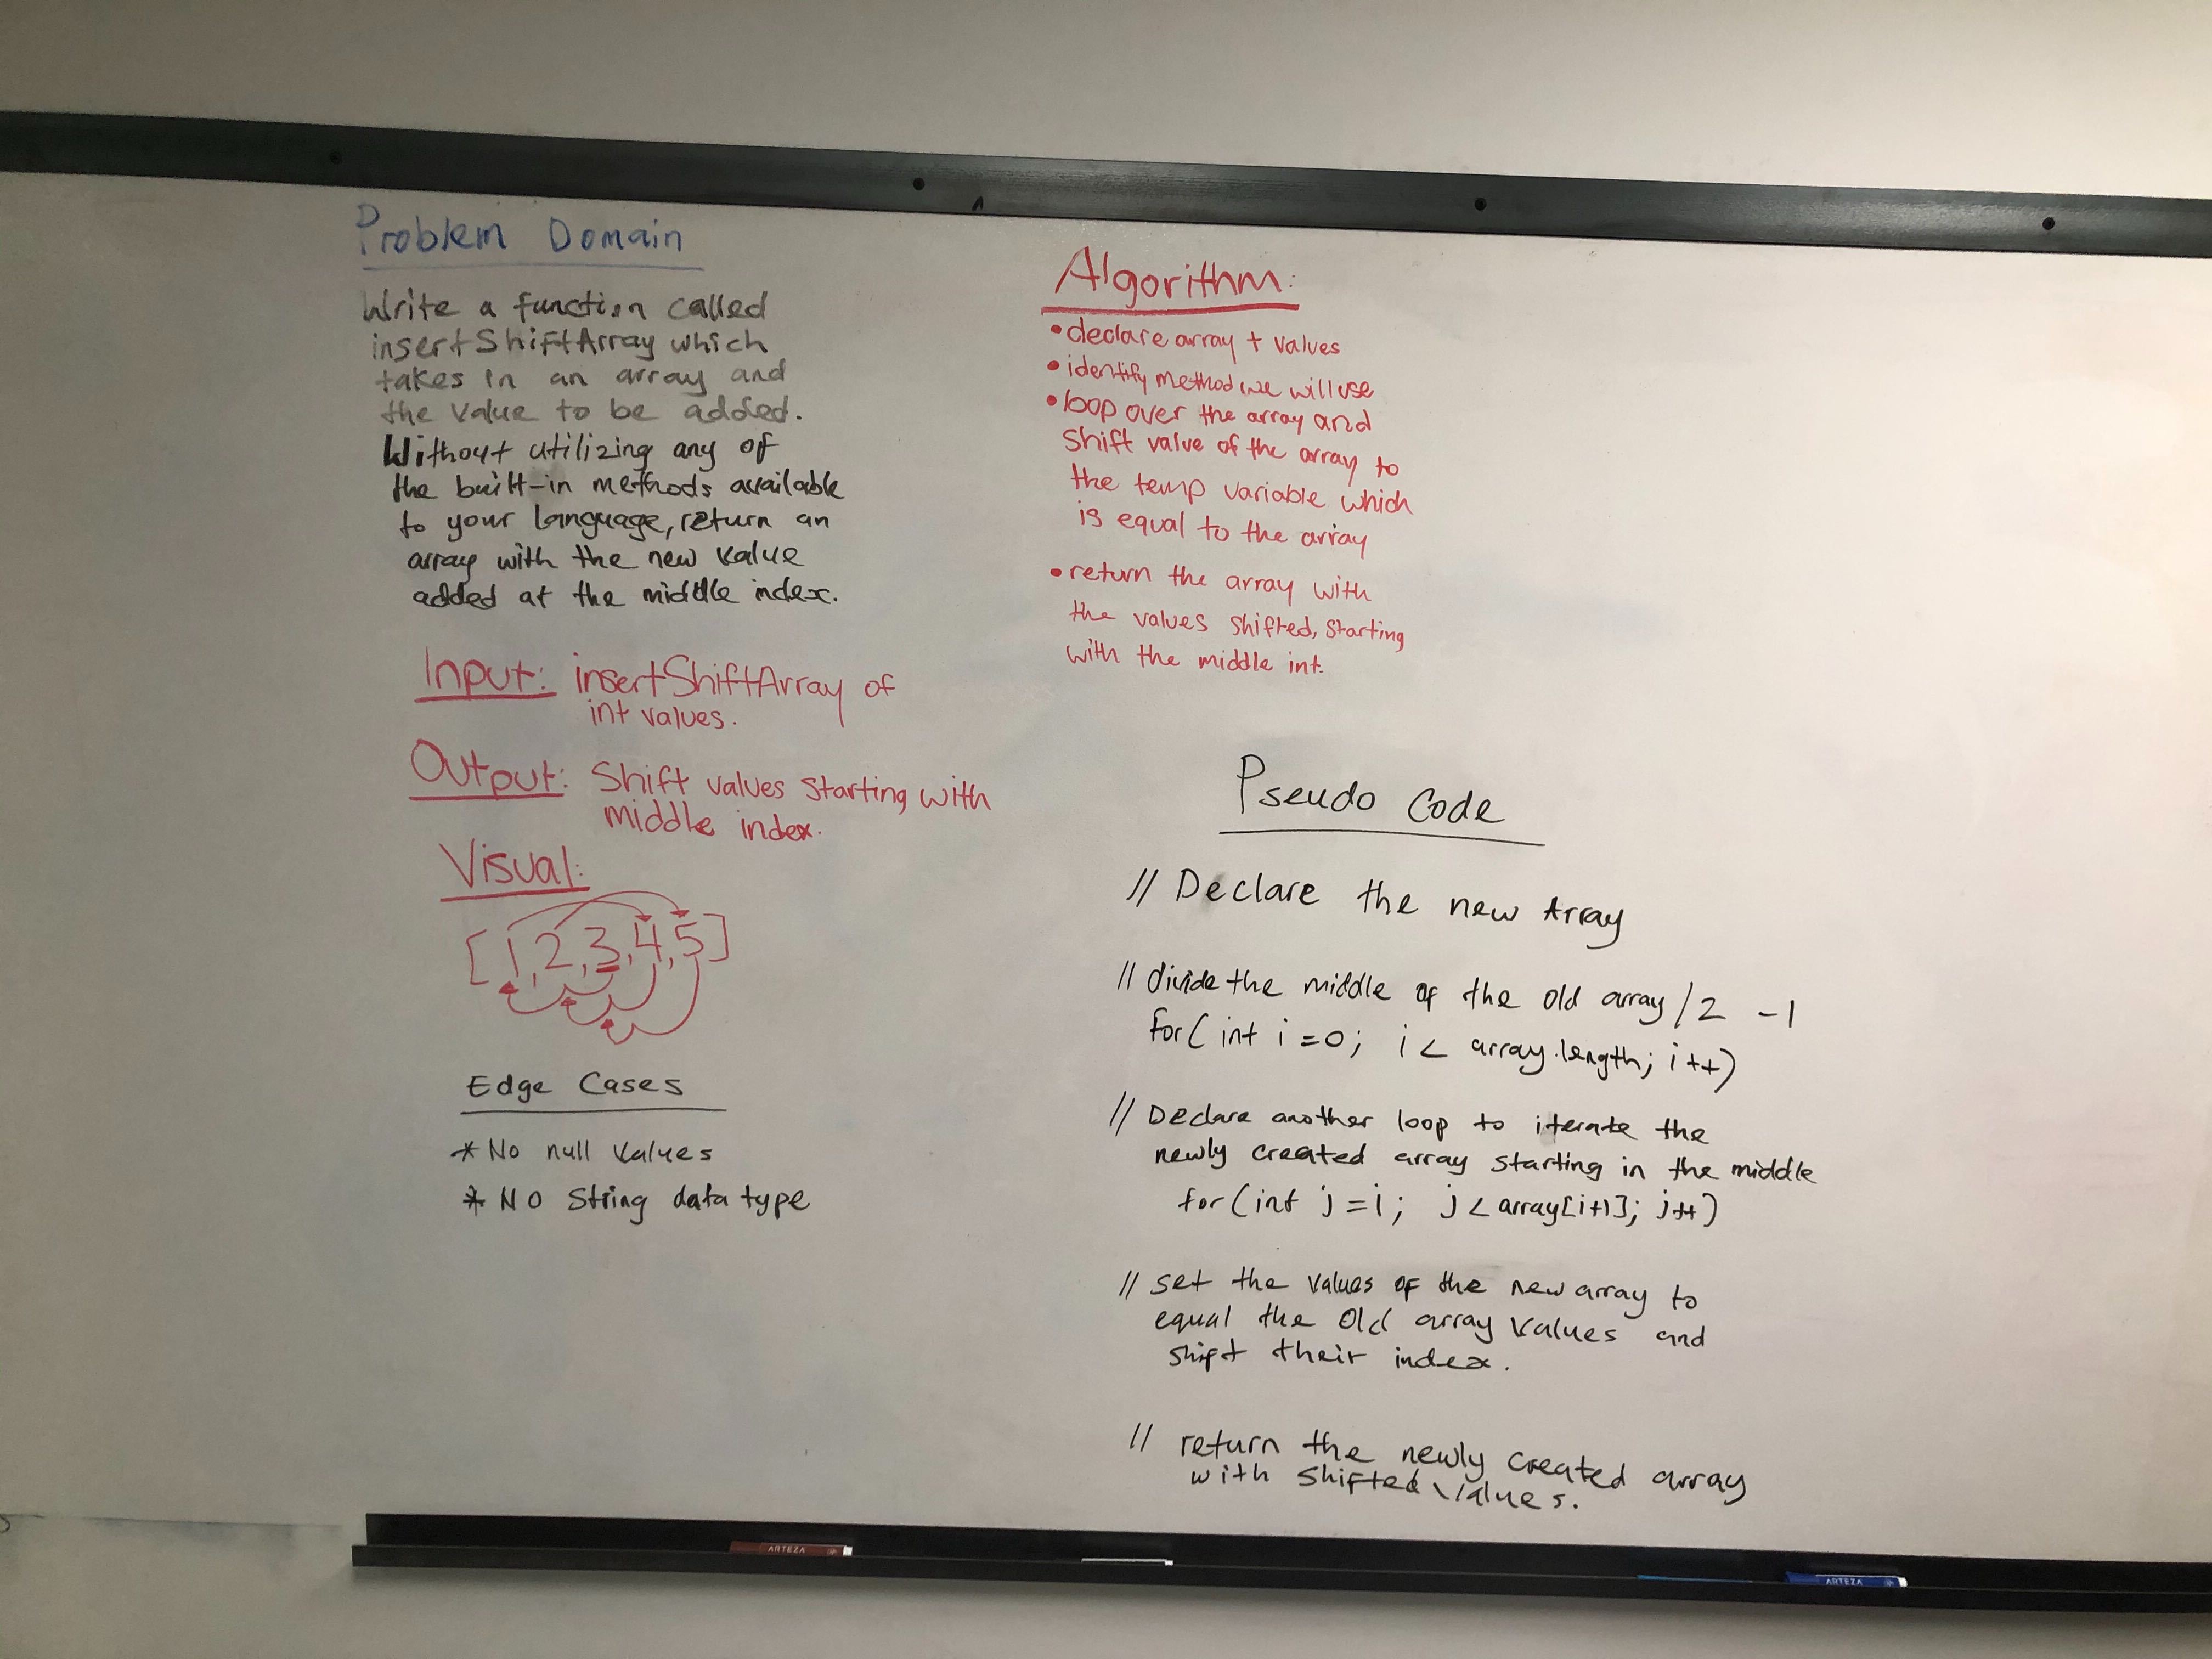 Problem Domain
Write a function called
insertShiftArray which
takes in an array and
the value to be added.
Without utilizing any of
the built-in methods available
to your language, return an
array with the new value
added at the middle index.
Input: insertShiftArray of
int values.
Output: Shift values starting with
middle index.
Visual:
[1,2,3,4,5]
Edge Cases
* No null values
* No String data type
Algorithm:
• declare array + values
• identify method we will use
• loop over the array and
shift value of the array to
the temp variable which
is equal to the array
• return the array with
the values shifted, starting
with the middle int.
Pseudo Code
// Declare the new Array
// divide the middle of the old array /2 -1
for( int i=0; i < array.length; i++)
// Declare another loop to iterate the
newly created array starting in the middle
for (int j=i; j < array[i+1]; j++)
// set the values of the new array to
equal the old array values and
shift their index.
// return the newly created array
with shifted values.
ARTEZA
ARTEZA